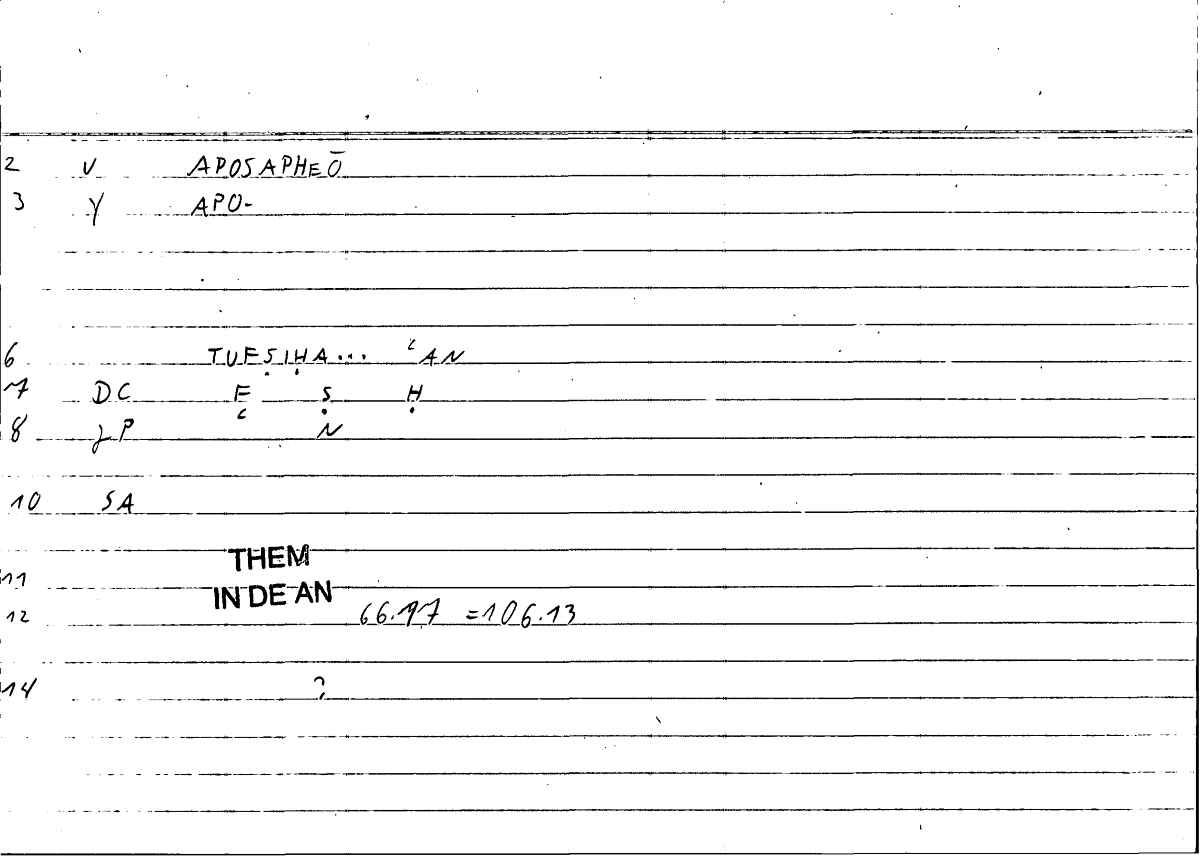 2 V APOSAPHEŌ
3 γ APO-
6 TUFṢỊHA... ʿAN
7 DC F Ṣ Ḥ
8 γP N
10 SA
THEM
11 IN DE AN
12 66.17 =106.13
14 ?